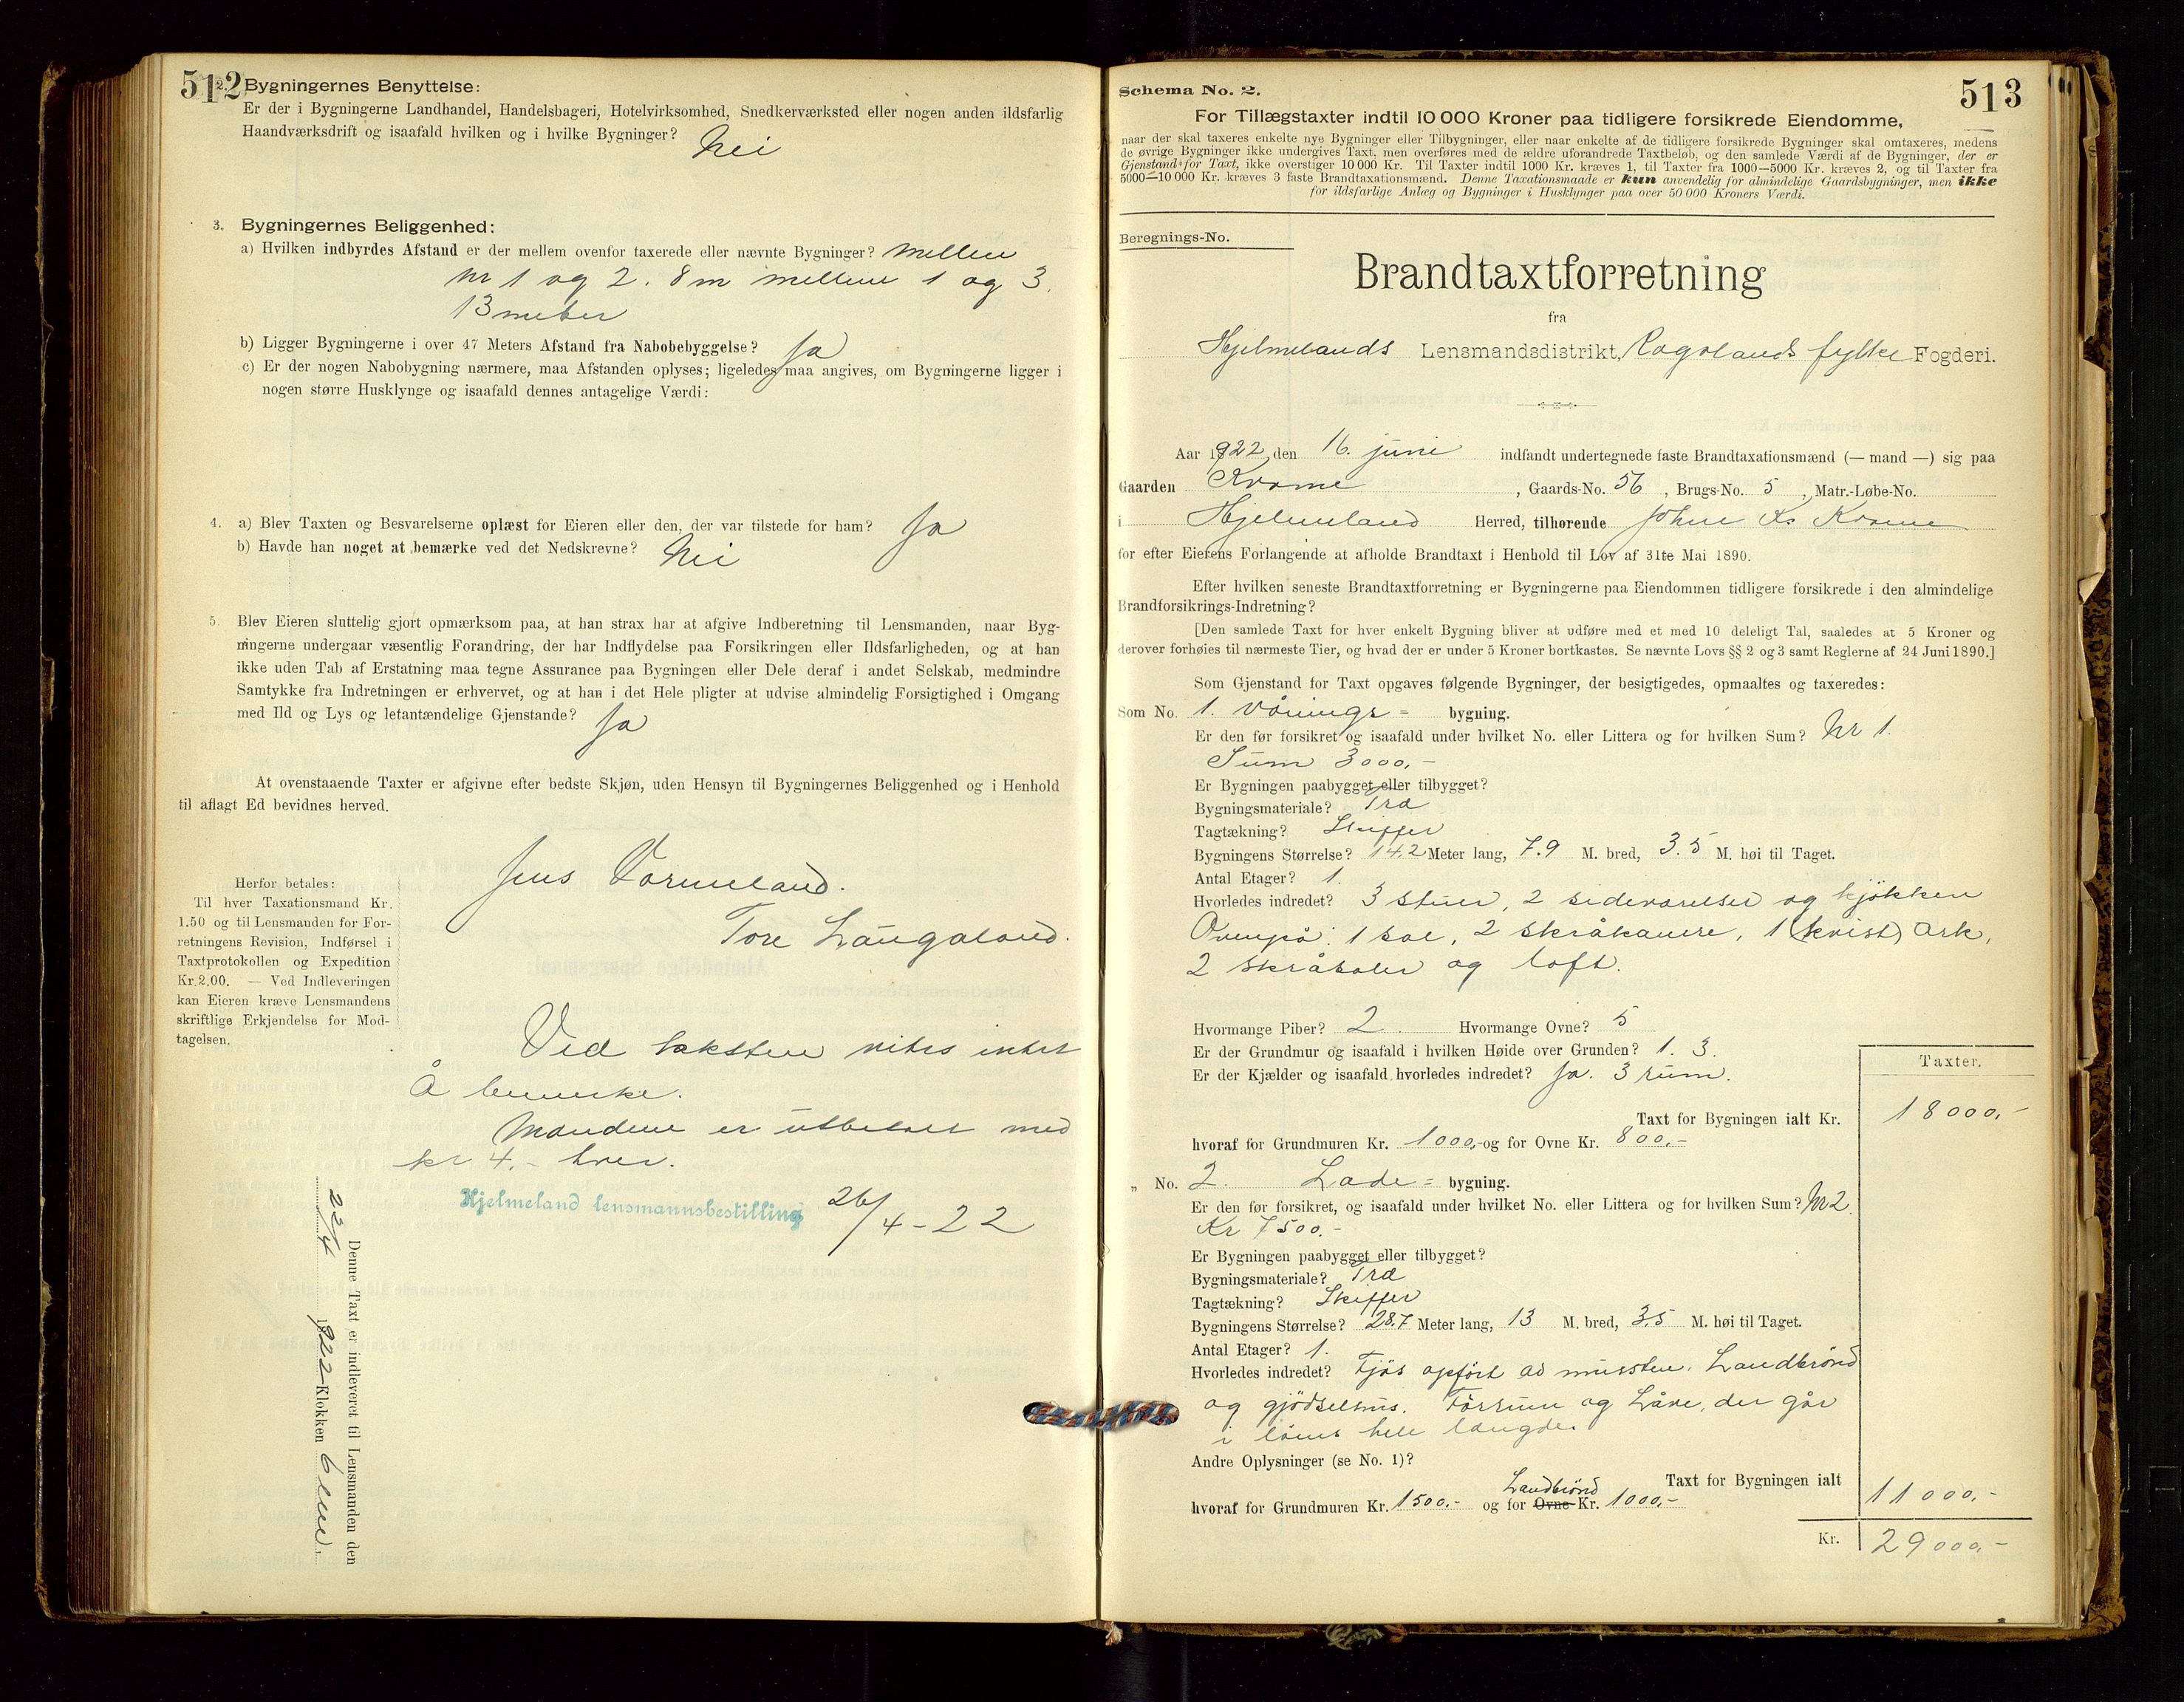 512
2.
Bygningernes Benyttelse:
Er der i Bygningerne Landhandel, Handelsbageri, Hotelvirksomhed, Snedkerværksted eller nogen anden ildsfarlig
Haandværksdrift og isaafald hvilken og i hvilke Bygninger? Nei
3. Bygningernes Beliggenhed:
a) Hvilken indbyrdes Afstand er der mellem ovenfor taxerede eller nævnte Bygninger? mellem
nr 1 og 2. 8 m mellem 1 og 3.
13 meter
b) Ligger Bygningerne i over 47 Meters Afstand fra Nabobebyggelse? Ja
c) Er der nogen Nabobygning nærmere, maa Afstanden oplyses; ligeledes maa angives, om Bygningerne ligger i
nogen større Husklynge og isaafald dennes antagelige Værdi:
4. a) Blev Taxten og Besvarelserne oplæst for Eieren eller den, der var tilstede for ham? Ja
b) Havde han noget at bemærke ved det Nedskrevne? Nei
5. Blev Eieren sluttelig gjort opmærksom paa, at han strax har at afgive Indberetning til Lensmanden, naar Byg-
ningerne undergaar væsentlig Forandring, der har Indflydelse paa Forsikringen eller Ildsfarligheden, og at han
ikke uden Tab af Erstatning maa tegne Assurance paa Bygningen eller Dele deraf i andet Selskab, medmindre
Samtykke fra Indretningen er erhvervet, og at han i det Hele pligter at udvise almindelig Forsigtighed i Omgang
med Ild og Lys og letantændelige Gjenstande? Ja
At ovenstaaende Taxter er afgivne efter bedste Skjøn, uden Hensyn til Bygningernes Beliggenhed og i Henhold
til aflagt Ed bevidnes herved.
Jens Vormeland.
Tore Laugaland.
Herfor betales:
Til hver Taxationsmand Kr.
1.50 og til Lensmanden for For-
retningens Revision, Indførsel i
Taxtprotokollen og Expedition
Kr. 2,00. — Ved Indleveringen
kan Eieren kræve Lensmandens
skriftlige Erkjendelse for Mod-
tagelsen.
Ved taksten vites intet
Å bemerke.
Mandene er utbetalt med
kr 4,- hver.
Hjelmeland lensmannsbestilling 26/4-22
Denne Taxt er indleveret til Lensmanden den
22/4 1922 Klokken 6 em.
513
Schema No. 2.
For Tillægstaxter indtil 10 000 Kroner paa tidligere forsikrede Eiendomme,
naar der skal taxeres enkelte nye Bygninger eller Tilbygninger, eller naar enkelte af de tidligere forsikrede Bygninger skal omtaxeres, medens
de øvrige Bygninger ikke undergives Taxt, men overføres med de ældre uforandrede Taxtbeløb, og den samlede Værdi af de Bygninger, der er
Gjenstand for Taxt, ikke overstiger 10 000 Kr. Til Taxter indtil 1000 Kr. kræves 1, til Taxter fra 1000—5000 Kr. kræves 2, og til Taxter fra
5000—10 000 Kr. kræves 3 faste Brandtaxationsmænd. Denne Taxationsmaade er kun anvendelig for almindelige Gaardsbygninger, men ikke
for ildsfarlige Anlæg og Bygninger i Husklynger paa over 50 000 Kroners Værdi.
Beregnings-No.
Brandtaxtforretning
fra
Hjelmelands Lensmandsdistrikt, Rogalands fylke Fogderi.
Aar 1922, den 16. juni indfandt undertegnede faste Brandtaxationsmænd (— mand —) sig paa
Gaarden Kvame, Gaards-No. 56, Brugs-No. 5, Matr.-Løbe-No.
i Hjelmeland Herred, tilhørende Johne Ks Kvame
for efter Eierens Forlangende at afholde Brandtaxt i Henhold til Lov af 31te Mai 1890.
Efter hvilken seneste Brandtaxtforretning er Bygningerne paa Eiendommen tidligere forsikrede i den almindelige
Brandforsikrings-Indretning?
[Den samlede Taxt for hver enkelt Bygning bliver at udføre med et med 10 deleligt Tal, saaledes at 5 Kroner og
derover forhøies til nærmeste Tier, og hvad der er under 5 Kroner bortkastes. Se nævnte Lovs §§ 2 og 3 samt Reglerne af 24 Juni 1890.]
Som Gjenstand for Taxt opgaves følgende Bygninger, der besigtigedes, opmaaltes og taxeredes:
Som No. 1. Vånings= bygning.
Er den før forsikret og isaafald under hvilket No. eller Littera og for hvilken Sum? Nr 1.
Sum 3000,-
Er Bygningen paabygget eller tilbygget?
Bygningsmateriale? Træ
Tagtækning? Skiffer
Bygningens Størrelse? 14.2 Meter lang, 7.9 M. bred, 3.5 M. høi til Taget.
Antal Etager? 1.
Hvorledes indredet? 3 stuer, 2 sideværelser og kjøkken
Ovenpå: 1 sal, 2 skråkamre, 1 (kvist) Ark,
2 skråsaler og loft.
Hvormange Piber? 2 Hvormange Ovne? 5
Er der Grundmur og isaafald i hvilken Høide over Grunden? 1. 3.
Er der Kjælder og isaafald hvorledes indredet? Ja. 3 rum.
Taxter.
Taxt for Bygningen ialt Kr. 18000,-
hvoraf for Grundmuren Kr. 1000,- og for Ovne Kr. 800,-
„ No. 2. Lade= bygning.
Er den før forsikret, og isaafald under hvilket No. eller Littera og for hvilken Sum? Nr 2.
Kr 7500.-
Er Bygningen paabygget eller tilbygget?
Bygningsmateriale? Træ
Tagtækning? Skiffer
Bygningens Størrelse? 28.7 Meter lang, 13 M. bred, 3.5 M. høi til Taget.
Antal Etager? 1.
Hvorledes indredet? Fjøs opført av mursten. Landbrönd
og gjødselhus. Fôrrum og Låve, der går
i låens hele længde.
Andre Oplysninger (se No. 1)?
Taxt for Bygningen ialt 11000,-
Landbrönd
hvoraf for Grundmuren Kr. 1500.- og for Ovne Kr. 1000,-
Kr. 29000,-